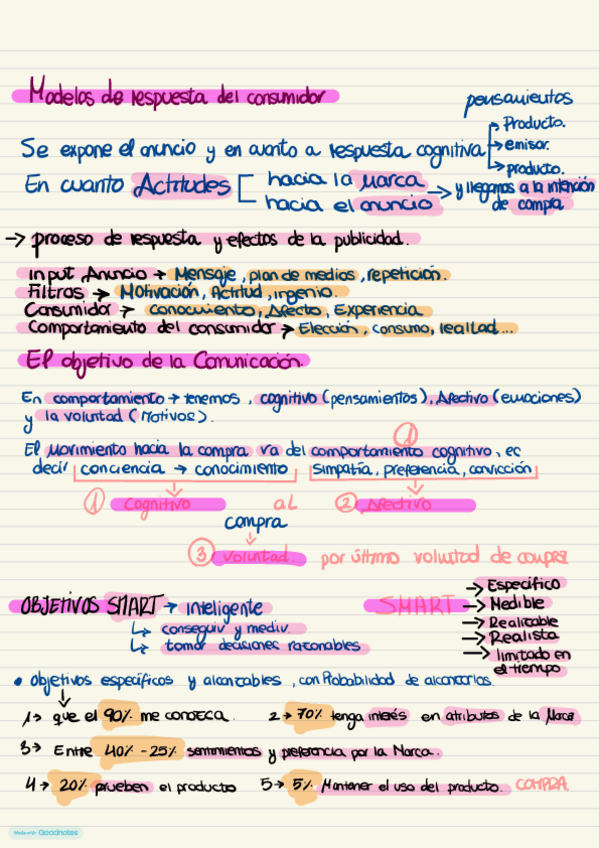 Modelos de respuesta del consumidor
pensamientos
Producto.
Se expone el anuncio y en cuanto a respuesta cognitiva → emisor.
→ producto.
En cuanto Actitudes [ hacia la Marca → y llegamos a la intención
hacia el anuncio de compra
→ proceso de respuesta y efectos de la publicidad.
Input Anuncio → Mensaje, plan de medios, repetición.
Filtros → Motivación, Actitud, ingenio.
Consumidor → conocimiento, Afecto, Experiencia
Comportamiento del consumidor → Elección, consumo, lealtad...
El objetivo de la Comunicación.
En comportamiento → tenemos, cognitivo (pensamientos), Afectivo (emociones)
y la voluntad (Motivos).
①
El Movimiento hacia la compra va del comportamiento cognitivo, es
decir conciencia → conocimiento simpatía, preferencia, convicción
① Cognitivo al ② Afectivo
compra
③ voluntad por último voluntad de compra
OBJETIVOS SMART → inteligente
↳ conseguir y medir.
↳ tomar decisiones razonables
SMART → Específico
→ Medible
→ Realizable
→ Realista
→ limitado en
el tiempo
• Objetivos específicos y alcanzables, con Probabilidad de alcanzarlos.
1→ que el 90% me conozca. 2→ 70% tenga interés en atributos de la Marca
3→ Entre 40% - 25% sentimientos y preferencia por la Marca.
4→ 20% prueben el producto 5→ 5% Mantener el uso del producto. COMPRA
Made with Goodnotes